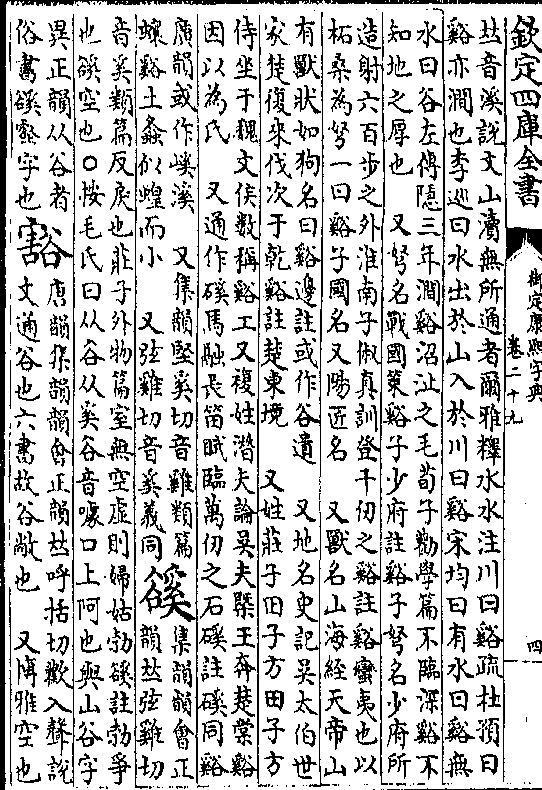 欽定四庫全書
御定康熙字典
卷二十九
四
𠀤音溪説文山瀆無所通者爾雅釋水水注川曰谿疏杜預曰
谿亦澗也李巡曰水出於山入於川曰谿宋均曰有水曰谿無
水曰谷左傳隱三年澗谿沼沚之毛荀子勸學篇不臨深谿不
知地之厚也　又弩名戰國策谿子少府註谿子弩名少府所
造射六百步之外淮南子俶真訓登千仞之谿註谿蠻夷也以
柘桑為弩一曰谿子國名又陽匠名　又獸名山海經天帝山
有獸狀如狗名曰谿邊註或作谷遺　又地名史記吳太伯世
家楚復來伐次于乾谿註楚東境　又姓莊子田子方田子方
侍坐于魏文侯數稱谿工又複姓潛夫論吳夫槩王奔楚棠谿
因以為氏　又通作磎馬融長笛賦臨萬仞之石磎註磎同谿
廣韻或作嵠溪　又集韻堅奚切音雞類篇
蠰谿土螽似蝗而小　又弦雞切音奚義同
豀
集韻韻會正
韻𠀤弦雞切
音奚類篇反戾也莊子外物篇室無空虛則婦姑勃豀註勃爭
也豀空也○按毛氏曰从谷从奚谷音噱口上阿也與山谷字
異正韻从谷者
俗書豀壑字也
豁
唐韻集韻韻會正韻𠀤呼括切歡入聲說
文通谷也六書故谷敞也　又博雅空也